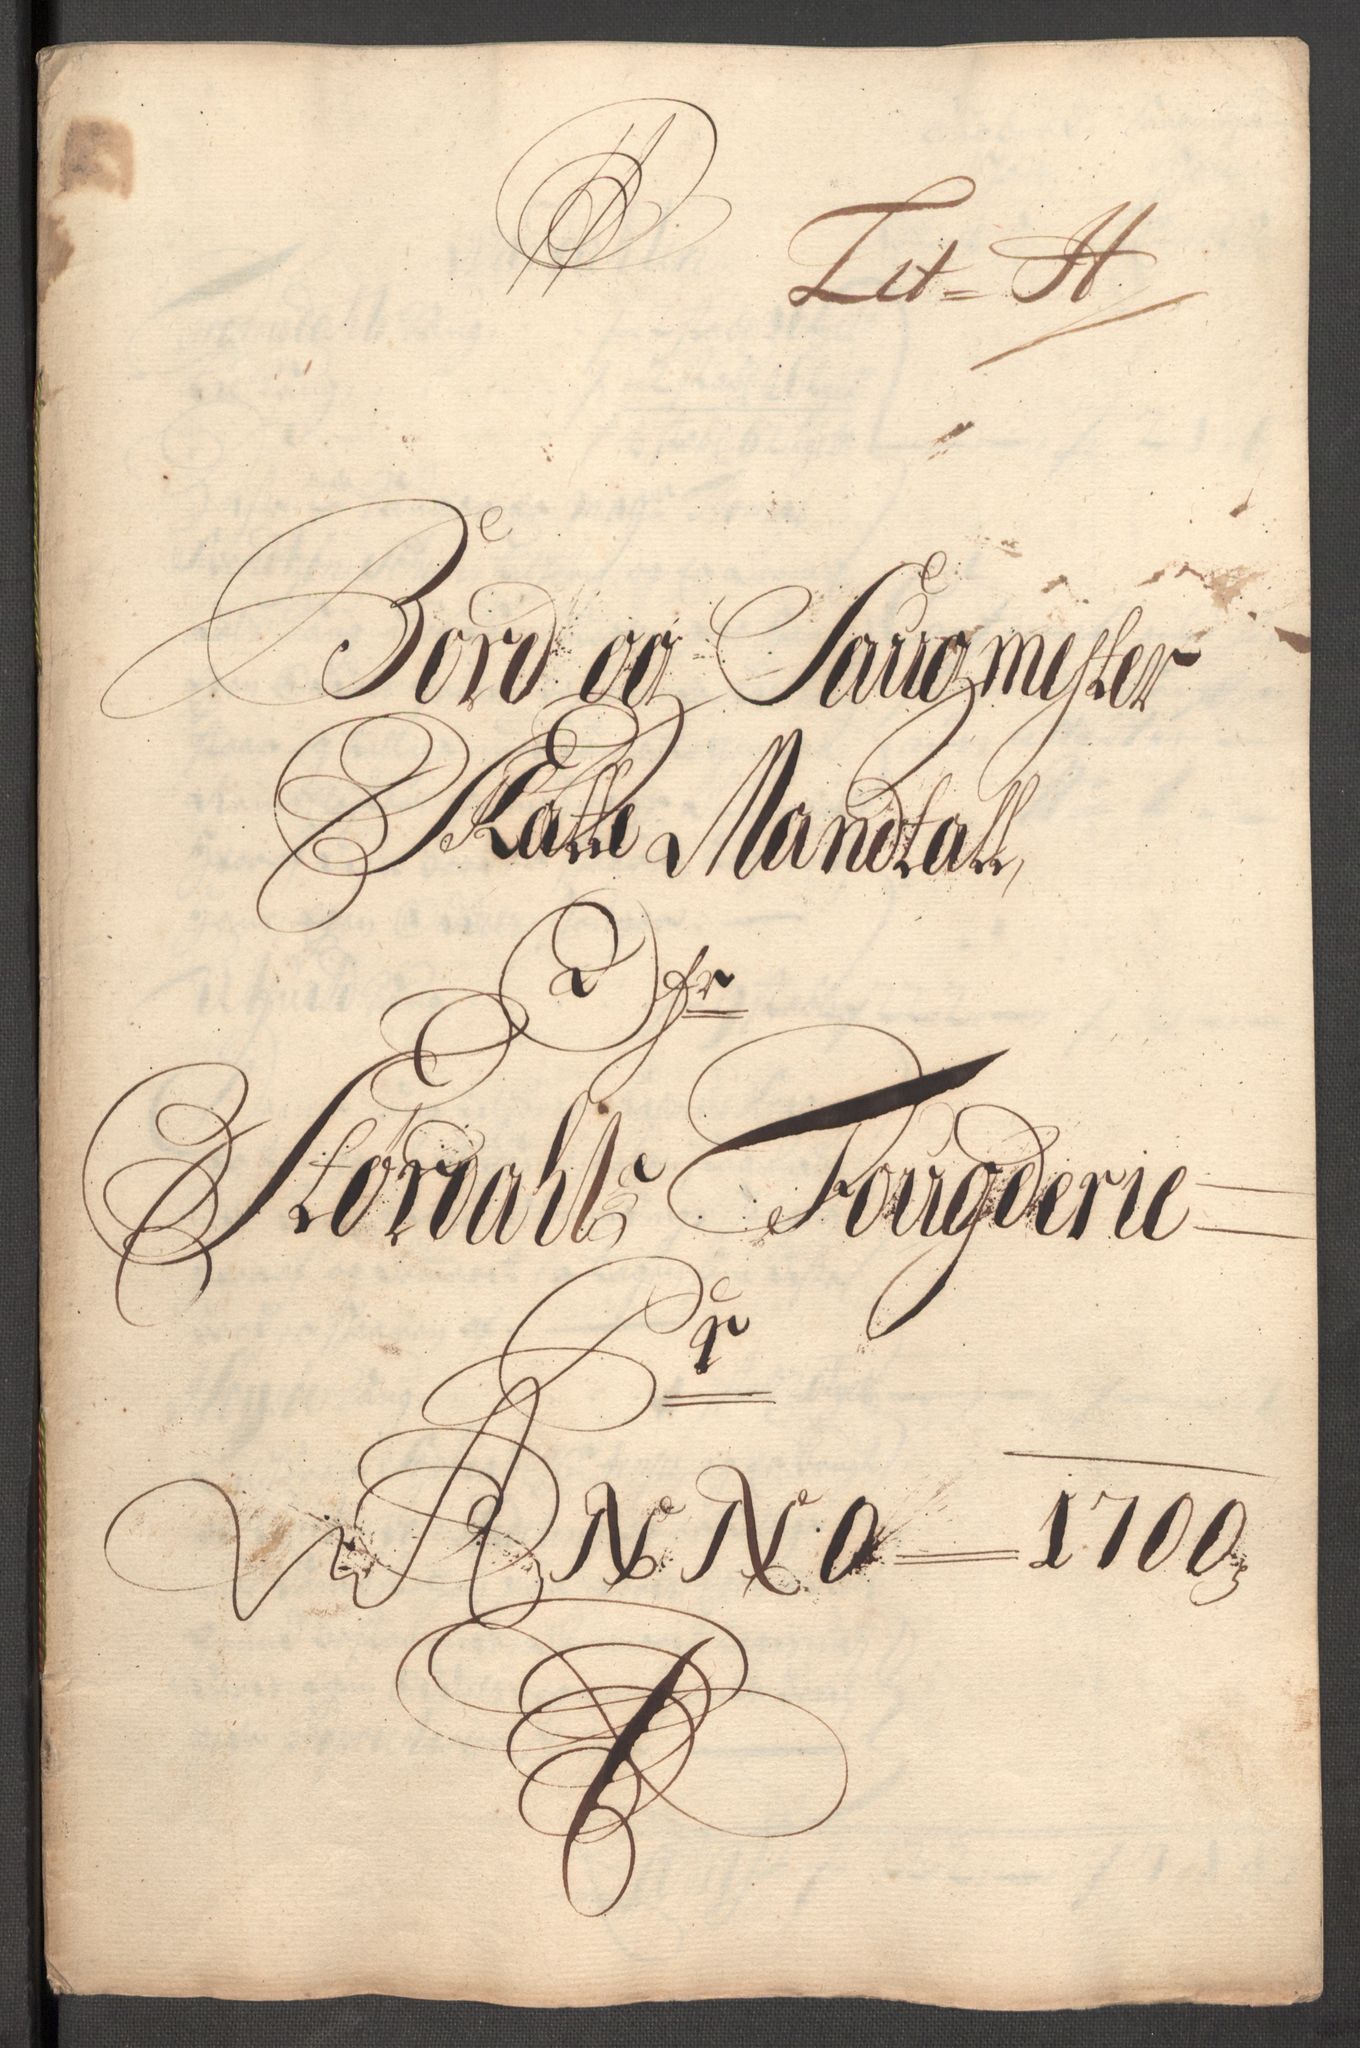 Lit = H
Bord og Saugmester
Skatte Mandtall,
Ofr
Størdahls Fougderie
Pr
ANNO 1700